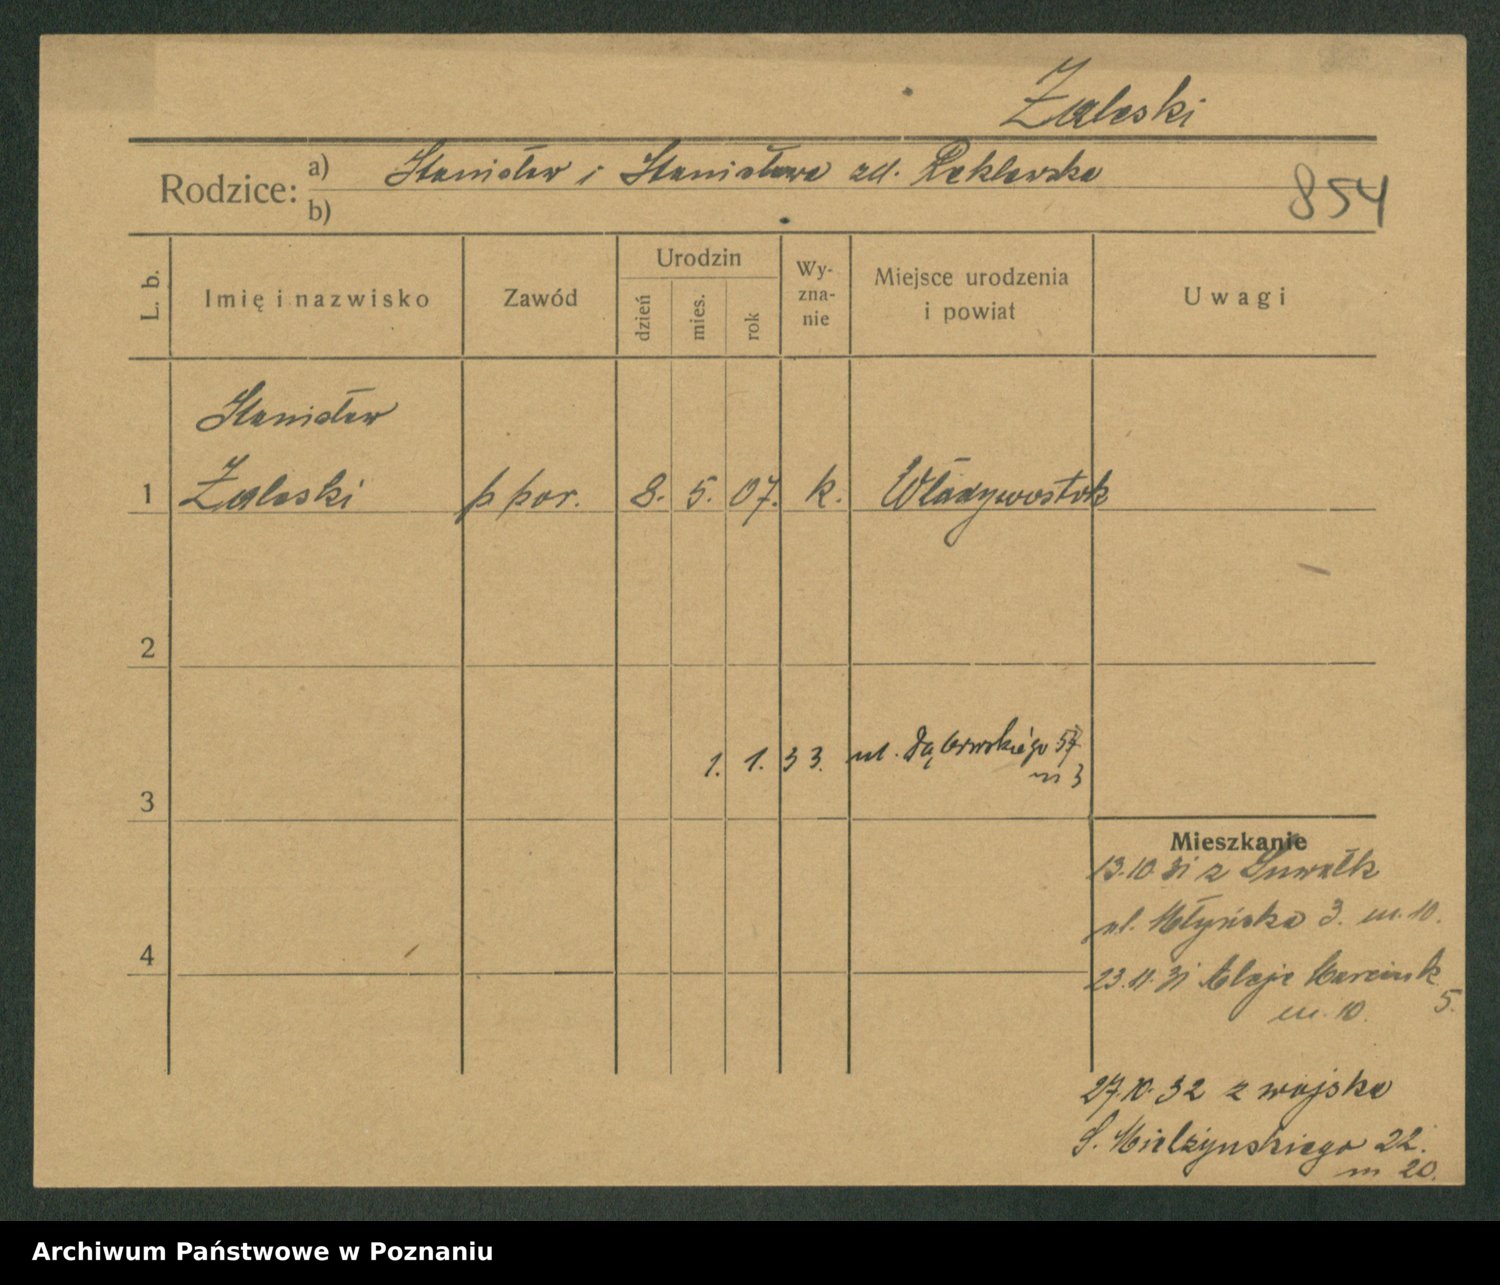 Zaleski
Rodzice: a) Stanisław i Stanisława zd. Reklewska
b)
854
L. b.
Imię i nazwisko
Zawód
Urodzin
dzień
mies.
rok
Wy-
zna-
nie
Miejsce urodzenia
i powiat
Uwagi
Stanisław
1 Zaleski p por. 8. 5. 07. k. Władywostok
2
1. 1. 33. ul. Dąbrowskiego 57
m 3
3
Mieszkanie
13.10 31 z Suwałk
ul. Młyńska 3. m. 10.
4
23.11.31 Aleje Marcink 5.
m. 10.
27.10.32 z wojska
S. Mielżynskiego 22.
m 20.
Archiwum Państwowe w Poznaniu